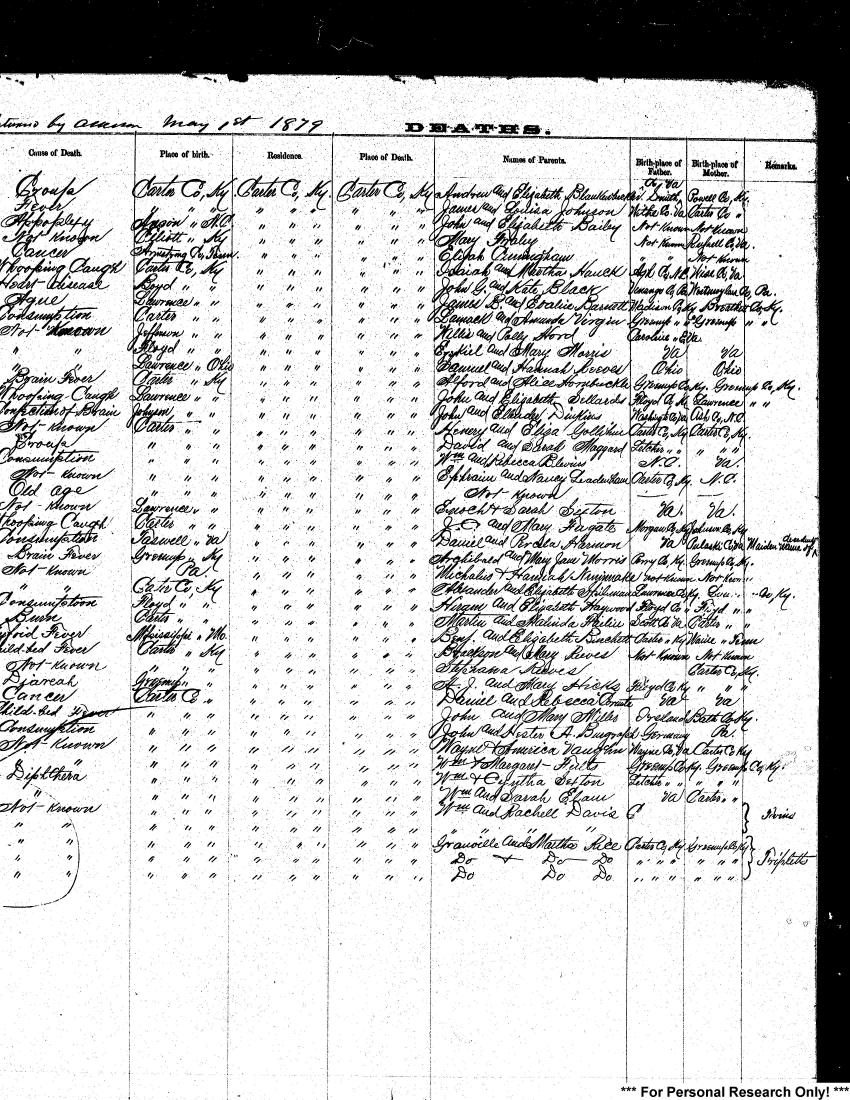 by assessor May 1st 1879 DEATHS.
Cause of Death. Place of birth. Residence. Place of Death. Names of Parents. Birth-place of Father. Birth-place of Mother. Remarks.
Croup Carter Co, Ky Carter Co, Ky. Carter Co, Ky Andrew and Elizabeth Blankenbeckler Smith, Co, Va Powell Co, Ky.
Fever " " " " " " " " James and Louisa Johnson Wythe Co. Va Carter Co "
Apoplexy Anson " N.C. " " " " " " John and Elizabeth Bailey Not Known Not Known
Not Known Elliott " Ky " " " " " " Mary Fraley Not Known Russell Co, Va.
Cancer Armstrong Co, " " " " " " Elijah Cunningham " " Not Known
Whooping Caugh Carter Co, Ky " " " " " " Isaiah and Martha Hauck Ash Co, N.C. Wise Co, Va
Heart disease Boyd " " " " " " " " John G. and Kate Black Venango Co, Pa Westmorland Co, Pa.
Ague Lawrence " " " " " " " " James B. and Evaline Barnett Madison Co, Ky Breathitt Co, Ky.
Consumption Carter " " " " " " " " and Amanda Virgin Greenup " " Greenup " "
Not Known Jefferson " " " " " " " " Willis and Polly Hord Caroline " Va
" " Floyd " " " " " " " " Ezekiel and Mary Morris Va Va
" " Lawrence " Ohio " " " " " " Samuel and Hannah Reeves Ohio Ohio
Brain Fever Carter " Ky " " " " " " Alford and Alice Hornbuckle Greenup Co, Ky. Greenup Co, Ky.
Whooping Caugh Lawrence " " " " " " " " John and Elizabeth Sellards Floyd Co, Ky. Lawrence " "
of Brain Johnson " " " " " " " " John and Dinkins Washington Co, Va Ash Co, N.C.
Not Known Carter " " " " " " Henery and Eliza Gollihue Carter Co, Ky Carter Co, Ky.
Croup " " " " " " " " David and Sarah Maggard Letcher " " " " "
Consumption " " " " " " " " Wm and Rebecca Blevins N.C. Va.
Not Known " " " " " " " " Ephraim and Nancy Leadenham Carter Co, Ky N.C.
Old age " " " " " " " " Not Known
Not Known Lawrence " " " " " " " Enoch & Sarah Sexton Va. Va.
Whooping Caugh Carter " " " " " " " " J.C. and Mary Fugate Morgan Co, Ky Johnson Co, Ky
Consumption Tazwell " Va " " " " " " Daniel and Harmon Va Pulaski Co, Va Maiden name of
Brain Fever Greenup " Ky " " " " " " Archibald and Mary Jane Morris Perry Co, Ky. Greenup Co, Ky.
Not Known Pa. " " " " " " & Hannah Not Known Not Known
" " Cater Co, Ky " " " " " " Alexander and Elizabeth Lawrence Co, Ky, Co, Ky.
Consumptoon Floyd " " " " " " " " Hiram and Elizabeth Haywood Floyd Co " Floyd " "
Burn Carter " " " " " " " " Martin and Malinda Scott Co, Va Carter " "
Fever Mississippi " Mo. " " " " " " Benj. and Elizabeth Burchett Carter " Ky
bed Fever Carter " Ky " " " " " " and Mary Reeves Not Known Not Known
Not Known " " " " " " " " Stephana Reeves Carter Co, Ky.
Diareah Greenup " " " " " " " A. J. and Mary Hicks Floyd Co, Ky " " "
Cancer Carter C " " " " " " " Daniel and Rebecca Va Va
Child-bed Fever " " " " " " " " John and Mary Willis Bath Co, Ky.
Consumption " " " " " " " " John and Hester A. Germany Pa.
Not Known " " " " " " " " Wayne & America Vaughn Wayne Co, Va Carter Co, Ky
" " " " " " " " Wm & Margaret Fults Greenup Co, Ky. Greenup Co, Ky.
Dipthera " " " " " " " " Wm & Sexton Letcher " " " " "
" " " " " " " " " Wm and Sarah Elam Va Carter " "
Not Known " " " " " " " " Wm and Rachell Davis C Twins
" " " " " " " " " " " " "
" " " " " " " " " " Granville and Martha Rice Carter Co, Ky Greenup Co, Ky
" " " " " " " " " " Do & Do Do " " " " " " Tripletts
" " " " " " " " " " Do Do Do " " " " " "
*** For Personal Research Only! ***